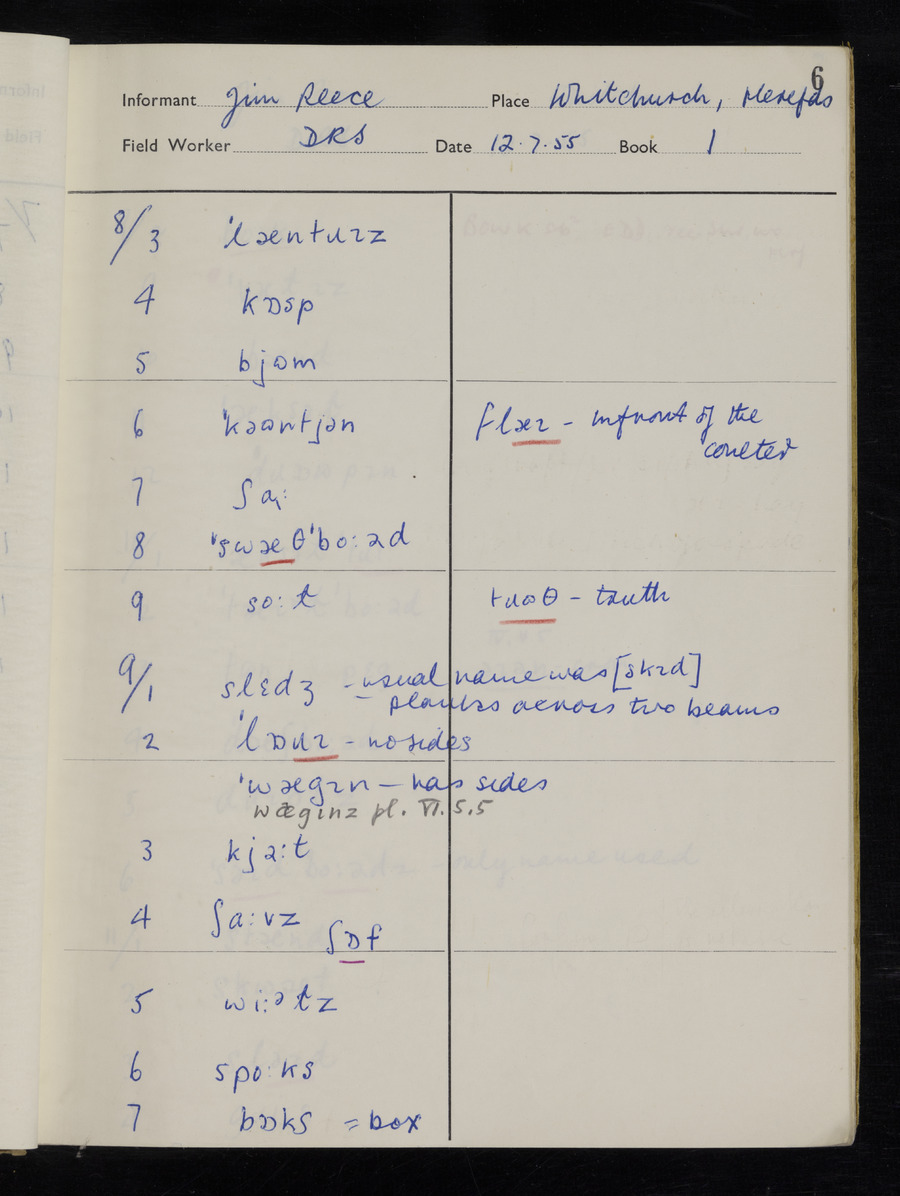 6
Informant Jim Reece Place Whitchurch, Herefds
Field Worker DRS Date 12.7.55 Book 1
8/3 ˈlæntɹɪz
4 kɒsp
5 bjəm
6 ˈkəəntʃən flæɪ - infront of the
coulter
7 ʃaː
8 ˈswæθˈboːəd
9 soːt tɹəθ - truth
9/1 slɛdʒ - usual name was [skɪd]
planks across two beams
2 ˈlɒɹɪ - no sides
ˈwægɪn - has sides
wæginz pl. VI.5.5
3 kjəːt
4 ʃaːvz
ʃɒf
5 wiːətz
6 spoːks
7 bɒks = box